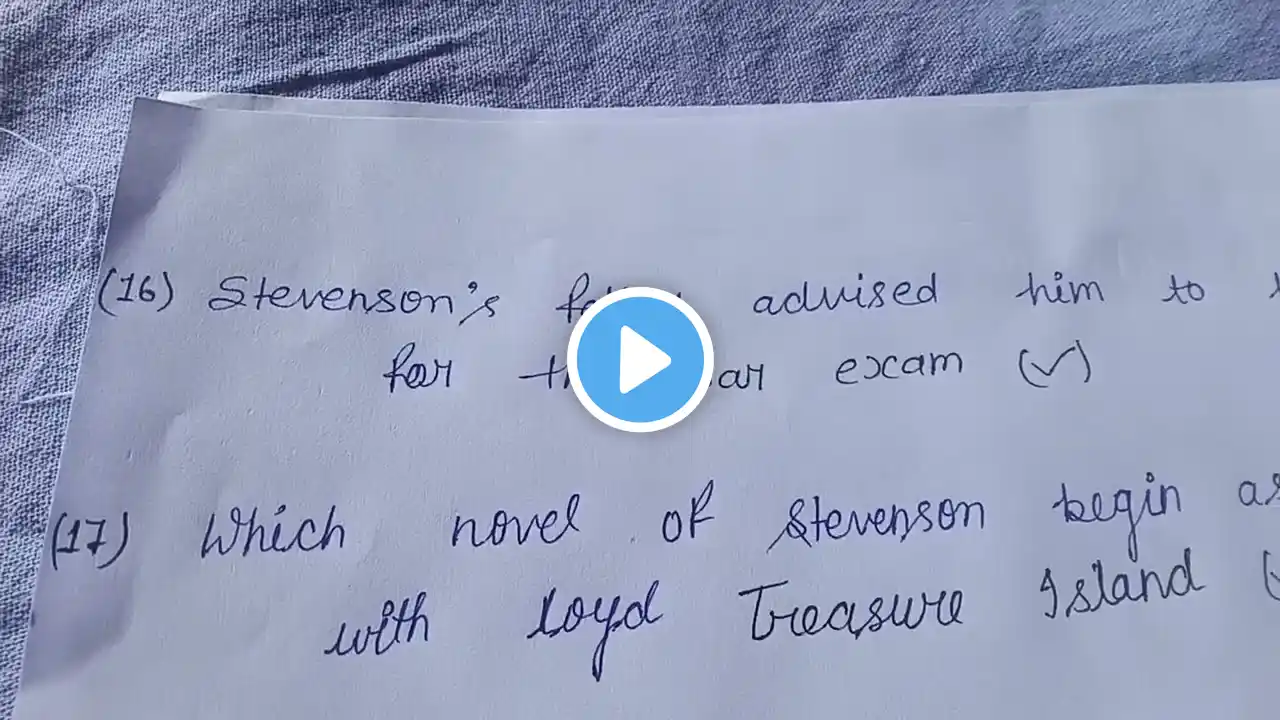 (16) Stevenson's advised him to
for exam (✓)
(17) Which novel of Stevenson begin as
with Loyd Treasure Island (